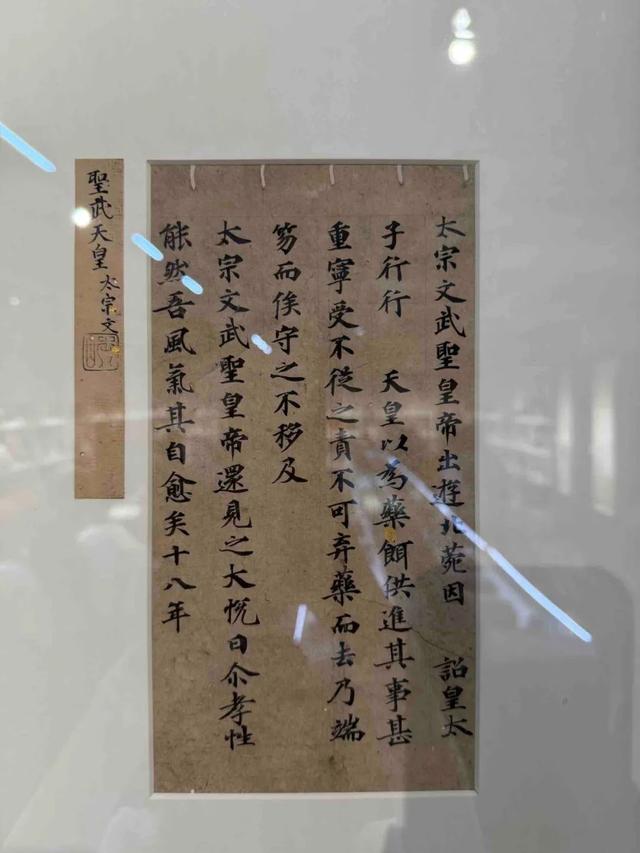 太宗文武聖皇帝出遊北菀因 詔皇太
子行行 天皇以為藥餌供進其事甚
重寧受不從之責不可弃藥而去乃端
笏而俟守之不移及
太宗文武聖皇帝還見之大悅曰尒孝性
能然吾風氣其自愈矣十八年
聖武天皇 太宗文